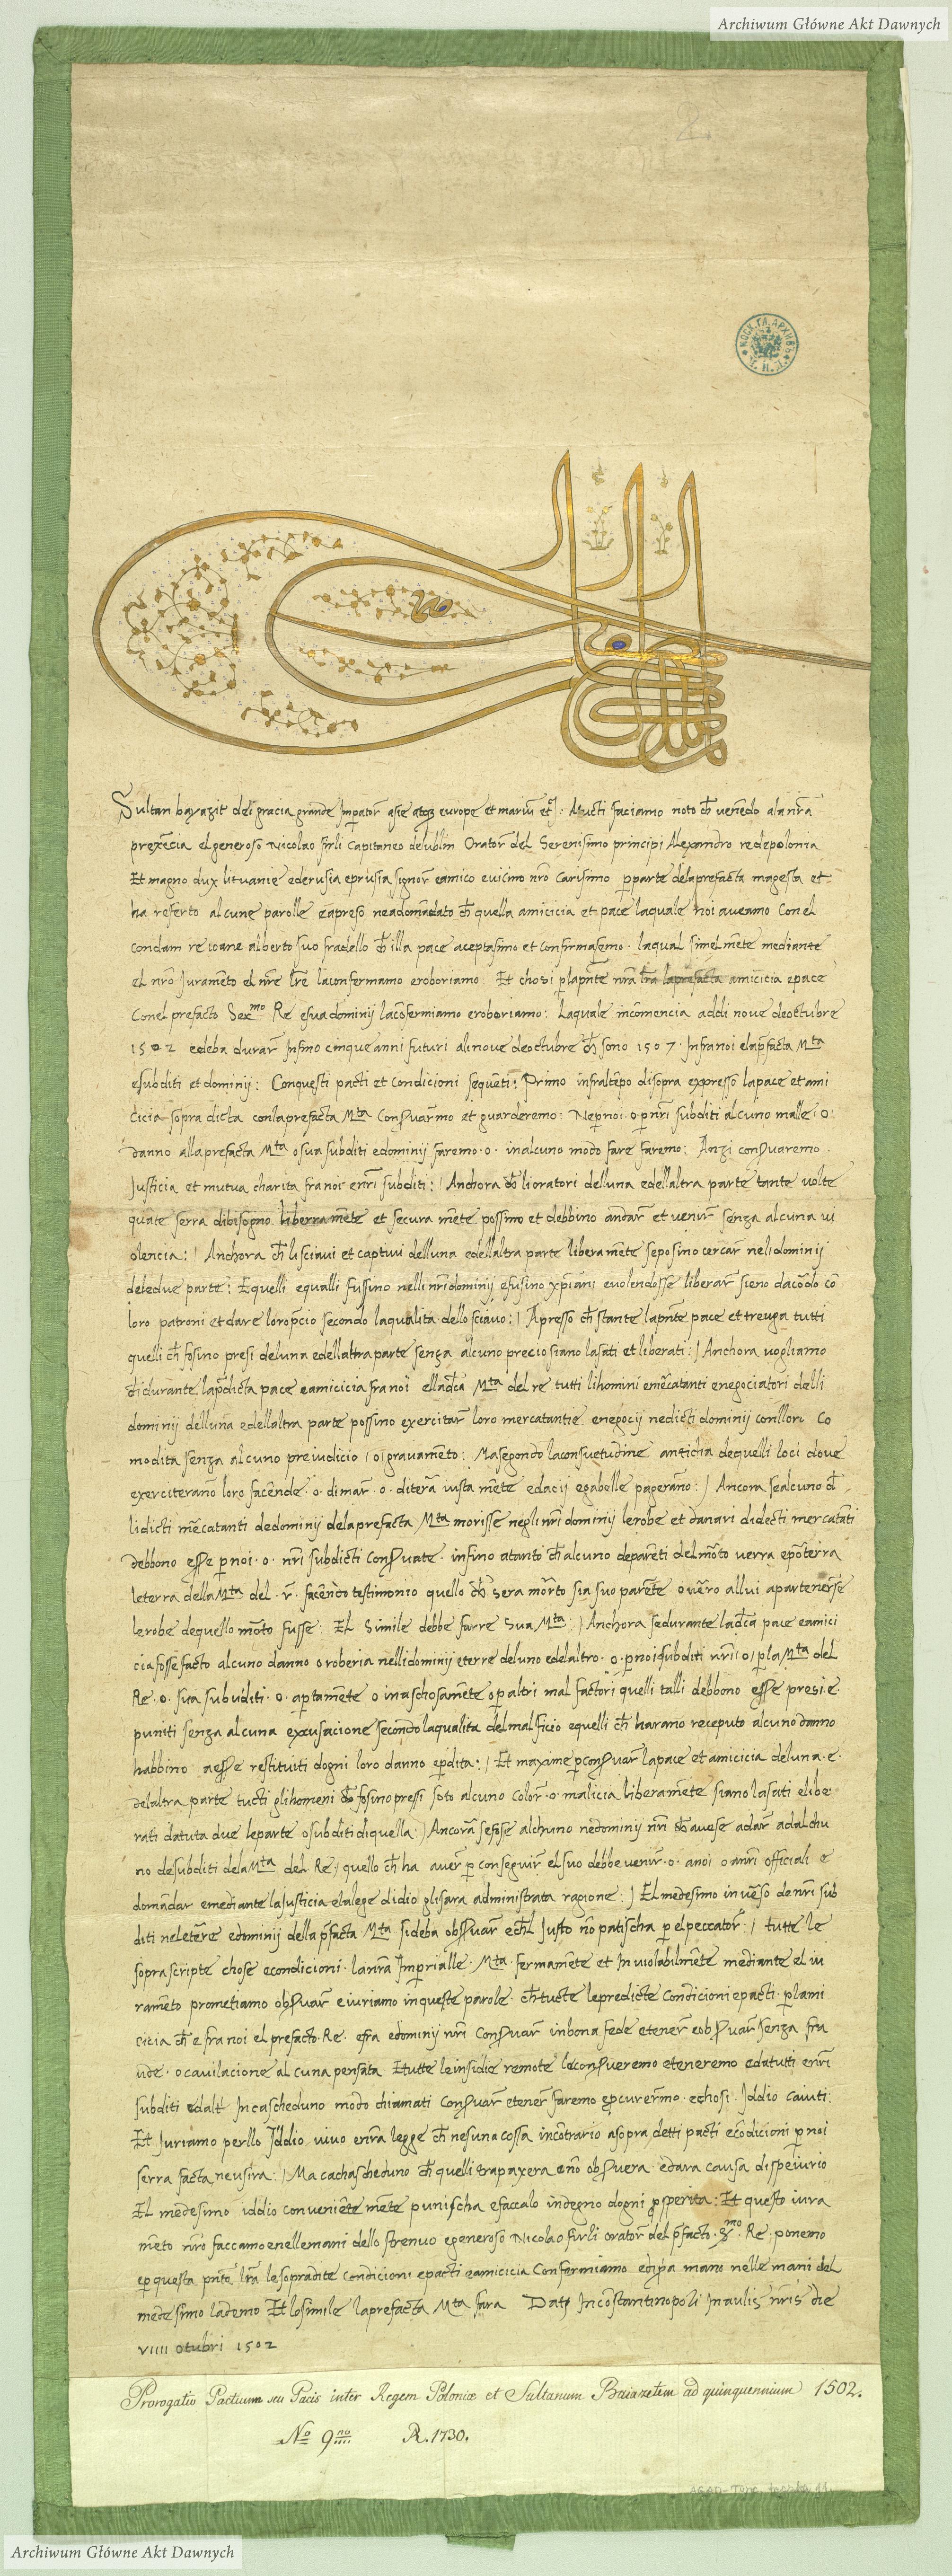 Archiwum Główne Akt Dawnych
2.
МОСК. ГЛ. АРХИВЪ
Sultan bayazit dei gracia grande Imperator asie atq3 europe et mariu etc. Atucti faciamo noto ch venendo ala nra
prexẽcia el generoso Nicolao firli Capitaneo de lublin Orator del Serenisimo principi Alexandro re de polonia
Et magno dux lituanie e de rusia e prusia signor e amico e vicino nro Carisimo p parte dela prefacta magesta et
ha referto alcune parolle e apreso ne adomãdato ch quella amicicia et pace la quale noi aveamo Con el
condam re ioane alberto suo fradello ch illa pace aceptasimo et confirmasemo. laqual simelmẽte mediante
el nro Juramẽto el nre lre la confermamo e roboriamo: Et chosi p la pnte nra lra la prefacta amicicia e pace
Con el prefacto Serxmo Re e sua dominij la cõfermiamo e roboriamo: Laquale incomencia addi nove de octubre
1502 e deba durar Infino cinque anni futuri ali nove de octubre ch sono 1507. Infra noi e la pfacta Mta
e subditi et dominij: Con questi pacti et condicioni sequẽti: Primo infra l tẽpo di sopra expresso la pace et ami
cicia sopra dicta con la prefacta Mta Conservarmo et guarderemo: Ne p noi. o. p nri subditi alcuno malle. o.
danno alla prefacta Mta o sua subditi e dominij faremo. o. in alcuno modo fare faremo: Anzi conservaremo
Justicia et mutua charita fra noi e nri subditi: / Anchora ch li oratori dell una e dell altra parte tante volte
quãte serra di bisogno liberramẽte et secura mẽte possino et debbino andar et venir senza alcuna vi
olencia: / Anchora ch li sciavi et captivi dell una e dell altra parte libera mẽte se posino cercar neli dominij
dele due parte: E quelli e qualli fussino nelli nri dominij e fusino xpiani e volendosse liberar sieno dacõdo cõ
loro patroni et dare lor opcio secondo la qualita dello sciavo: / Apresso ch stante la pnte pace et treuga tutti
quelli ch fosino presi de l una e dell altra parte senza alcuno precio siano lasati et liberati: / Anchora vogliamo
ch durante la pdicta pace e amicicia fra noi e lla dca Mta del re tutti li homini e mẽcatanti e negociatori delli
dominij dell una e dell altra parte possino exercitar loro mercatantie e negocij ne dicti dominij con lloro Co
modita senza alcuno preiudicio / o / gravamẽto: Ma segondo la consuetudine anticha de quelli loci dove
exerciterano loro facẽnde. o. di mar. o. di tera iusta mẽte e dacij e gabelle pagerano: / Ancora se alcuno d
li dicti mẽcatanti de dominij dela prefacta Mta morisse negli nri dominij le robe et danari di decti mercatãti
debbono esse p noi. o. nri subdicti Conservate. infino a tanto ch alcuno de parẽti del mõto verra
le terra della Mta del. r. facẽndo testimonio quello ch sera mõrto sia suo parẽte o vero allui apartenerse
le robe de quello mõto fusse: El Simile debbe farre Sua Mta: / Anchora se durante la dca pace e amici
cia fosse facto alcuno danno o roberia nelli dominij e terre de l uno e de l altro. o. p noi subditi nri / o / p la Mta del
Re. o. sua subuditi. o. aptamẽte o in aschosamẽte o p altri mal factori quelli talli debbono esse presi. e.
puniti senza alcuna excusacione secondo la qualita del mal ficio e quelli ch harano receputo alcuno danno
habbino a esse restituiti dogni loro danno e pdita: / Et maxime p conservar la pace et amicicia de l una. e.
de l altra parte tucti gli homeni ch fosino pressi soto alcuno Color. o. malicia libera mẽte siano lasati e libe
rati da tuta due le parte o subditi di quella: / Ancora se fosse alchuno ne dominij nri ch avese a dar a dalchu
no de subditi dela Mta del Re, quello ch ha aver p conseguir el suo debbe venir. o. a noi o a nri officiali e
domãdar e mediante la Justicia e la lege di dio gli sara administrata ragione: / El medesimo in vẽso de nri sub
diti ne le tere e dominij della pfacta Mta si deba observar e ch l Justo nõ patischa p el peccator: / tutte le
sopra scripte chose e condicioni. la nra Imperialle. Mta. fermamẽte et In violabilmẽte mediante el iu
ramẽto prometiamo observar e iuriamo in queste parole. ch tucte le predicte Condicioni e pacti. p la mi
cicia ch e fra noi el prefacto. Re. e fra e dominij nri Conservar in bona fede e tener e observar senza fra
ude. o cavilacione al cuna pensata E tutte le insidie remote le conserveremo e teneremo e da tutti e nri
subditi e dalt In cascheduno modo chiamati Conservar e tener faremo e pcurermo. e chosi. Iddio ci aiuti.
Et Juriamo per llo Iddio vivo e nra legge ch nesuna cossa in cõtrario a sopra detti pacti e cõdicioni p noi
serra facta ne usira: / Ma cachascheduno ch quelli trapaxera e nõ observera e dara causa dispeiurio
El medesimo iddio conveniẽte mẽte punischa e faccalo indegno dogni psperita: Et questo iura
mẽto nro faccamo e nelle mani dello strenuo e generoso Nicolao firli orator del pfacto. Smo. Re, ponemo
e p questa pnte lra le sopradite condicioni e pacti e amicicia Confermiamo e dipa mano nelle mani del
mede simo la demo Et lo simile la prefacta Mta fara Datz In cõstantinopoli In aulis nris die
viiii otubri 1502
Prorogatio Pactium seu Pacis inter Regem Poloniæ et Sultanum Baiazetem ad quinquennium 1502.
No 9no R. 1730.
Archiwum Główne Akt Dawnych